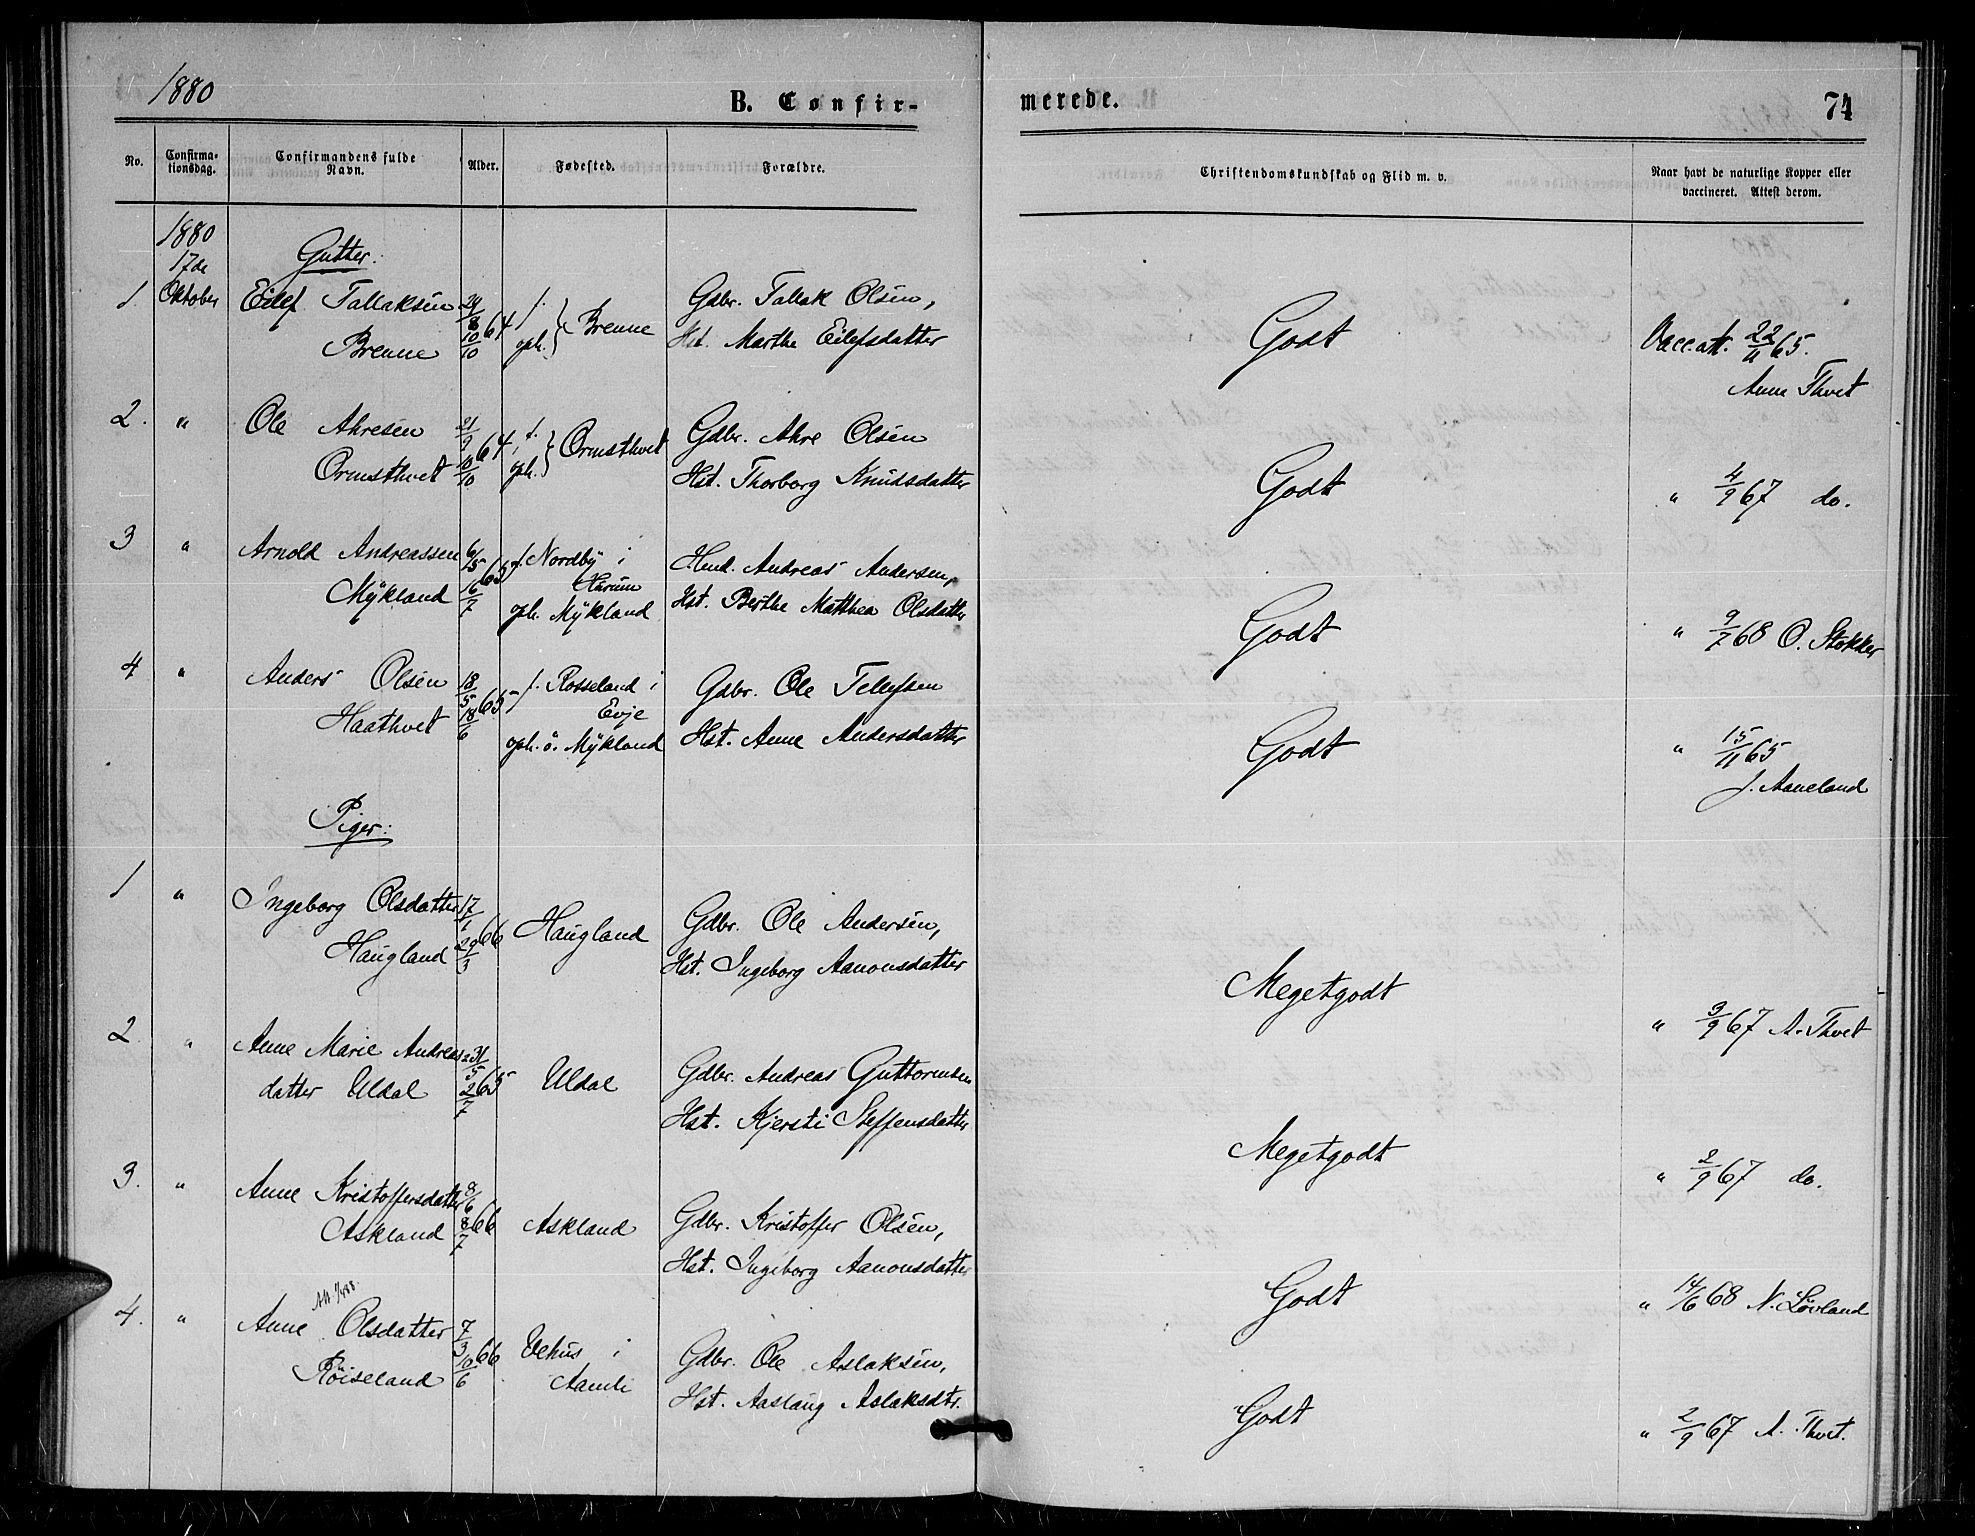 1880
B. Confir-
merede.
74
No.
Confirma-
tionsdag.
Confirmandens fulde
Navn.
Alder.
Fødested.
Forældre.
Christendomskundskab og Flid m. v.
Naar havt de naturlige Kopper eller
vaccineret. Attest derom.
1880
17de
Oktober
Gutter.
1 Eilef Tallaksen 24/8 64 f. Brenne Gdbr. Tallak Olsen,
Brenne 10/10 oph. Hst. Marthe Eilefsdatter
Godt
Vacc.att. 22/11 65.
Anne Thvet
2. " Ole Akresen 21/9 64 f. Ormsthvet Gdbr. Akre Olsen
Ormsthvet 10/10 oph. Hst. Thorborg Knudsdatter
Godt
" 4/9 67 do.
3 " Arnold Andreassen 6/5 65 f. Nordby i Hmd. Andreas Andersen,
Hurum
Mÿkland 16/7 oph. Mÿkland Hst. Berthe Matthea Olsdatter
Godt
" 9/7 68 O. Stokker
4 " Anders Olsen 18/5 65 f. Rosseland i Gdbr. Ole Tellefsen
Evje
Haathvet 18/6 oph. ö. Mÿkland Hst. Anne Andersdatter
Godt
" 15/11 65
J. Aaneland
Piger:
1 " Ingeborg Olsdatter 17/1 66 Haugland Gdbr. Ole Andersen,
Haugland 29/3 Hst. Ingeborg Aanonsdatter
Megetgodt
" 3/9 67 A. Thvet
2. " Anne Marie Andreas= 31/5 65 Uldal Gdbr. Andreas Guttormsen
datter Uldal 2/7 Hst. Kjersti Steffensdatter
Megetgodt
" 2/9 67 do.
3. " Anne Kristoffersdatter 8/6 66 Askland Gdbr. Kristoffer Olsen,
Askland 8/7 Hst. Ingeborg Aanonsdatter
Godt
" 14/6 68 N. Lövland
4. " Anne Olsdatter 7/3 66 Vehus i Gdbr. Ole Aslaksen,
Röiseland 10/6 Aamli Hst. Aaslaug Aslaksdtr.
Godt
" 2/9 67 A. Thvet.